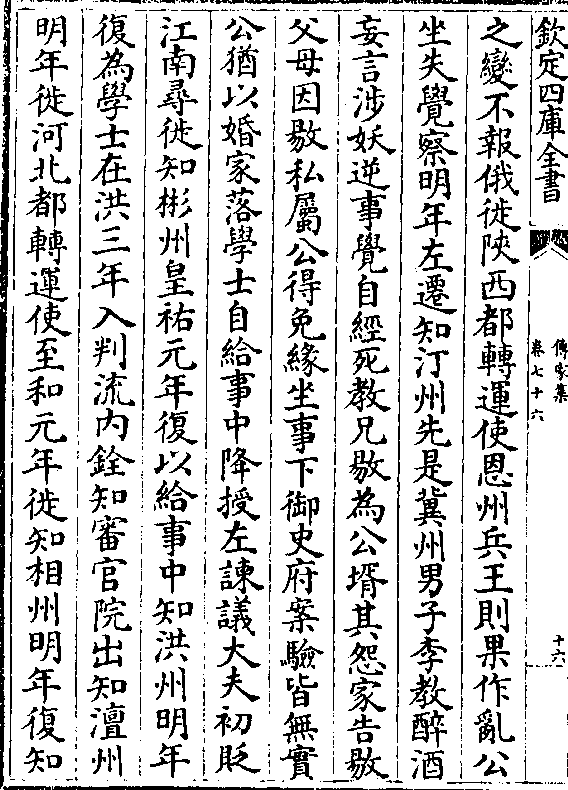 欽定四庫全書
傳家集
卷七十六
十六
之變不報俄徙陜西都轉運使恩州兵王則果作亂公
坐失覺察明年左遷知汀州先是冀州男子李教醉酒
妄言涉妖逆事覺自經死教兄敭為公壻其怨家告敭
父母因敭私屬公得免緣坐事下御史府案驗皆無實
公猶以婚家落學士自給事中降授左諫議大夫初貶
江南尋徙知彬州皇祐元年復以給事中知洪州明年
復為學士在洪三年入判流内銓知審官院出知澶州
明年徙河北都轉運使至和元年徙知相州明年復知